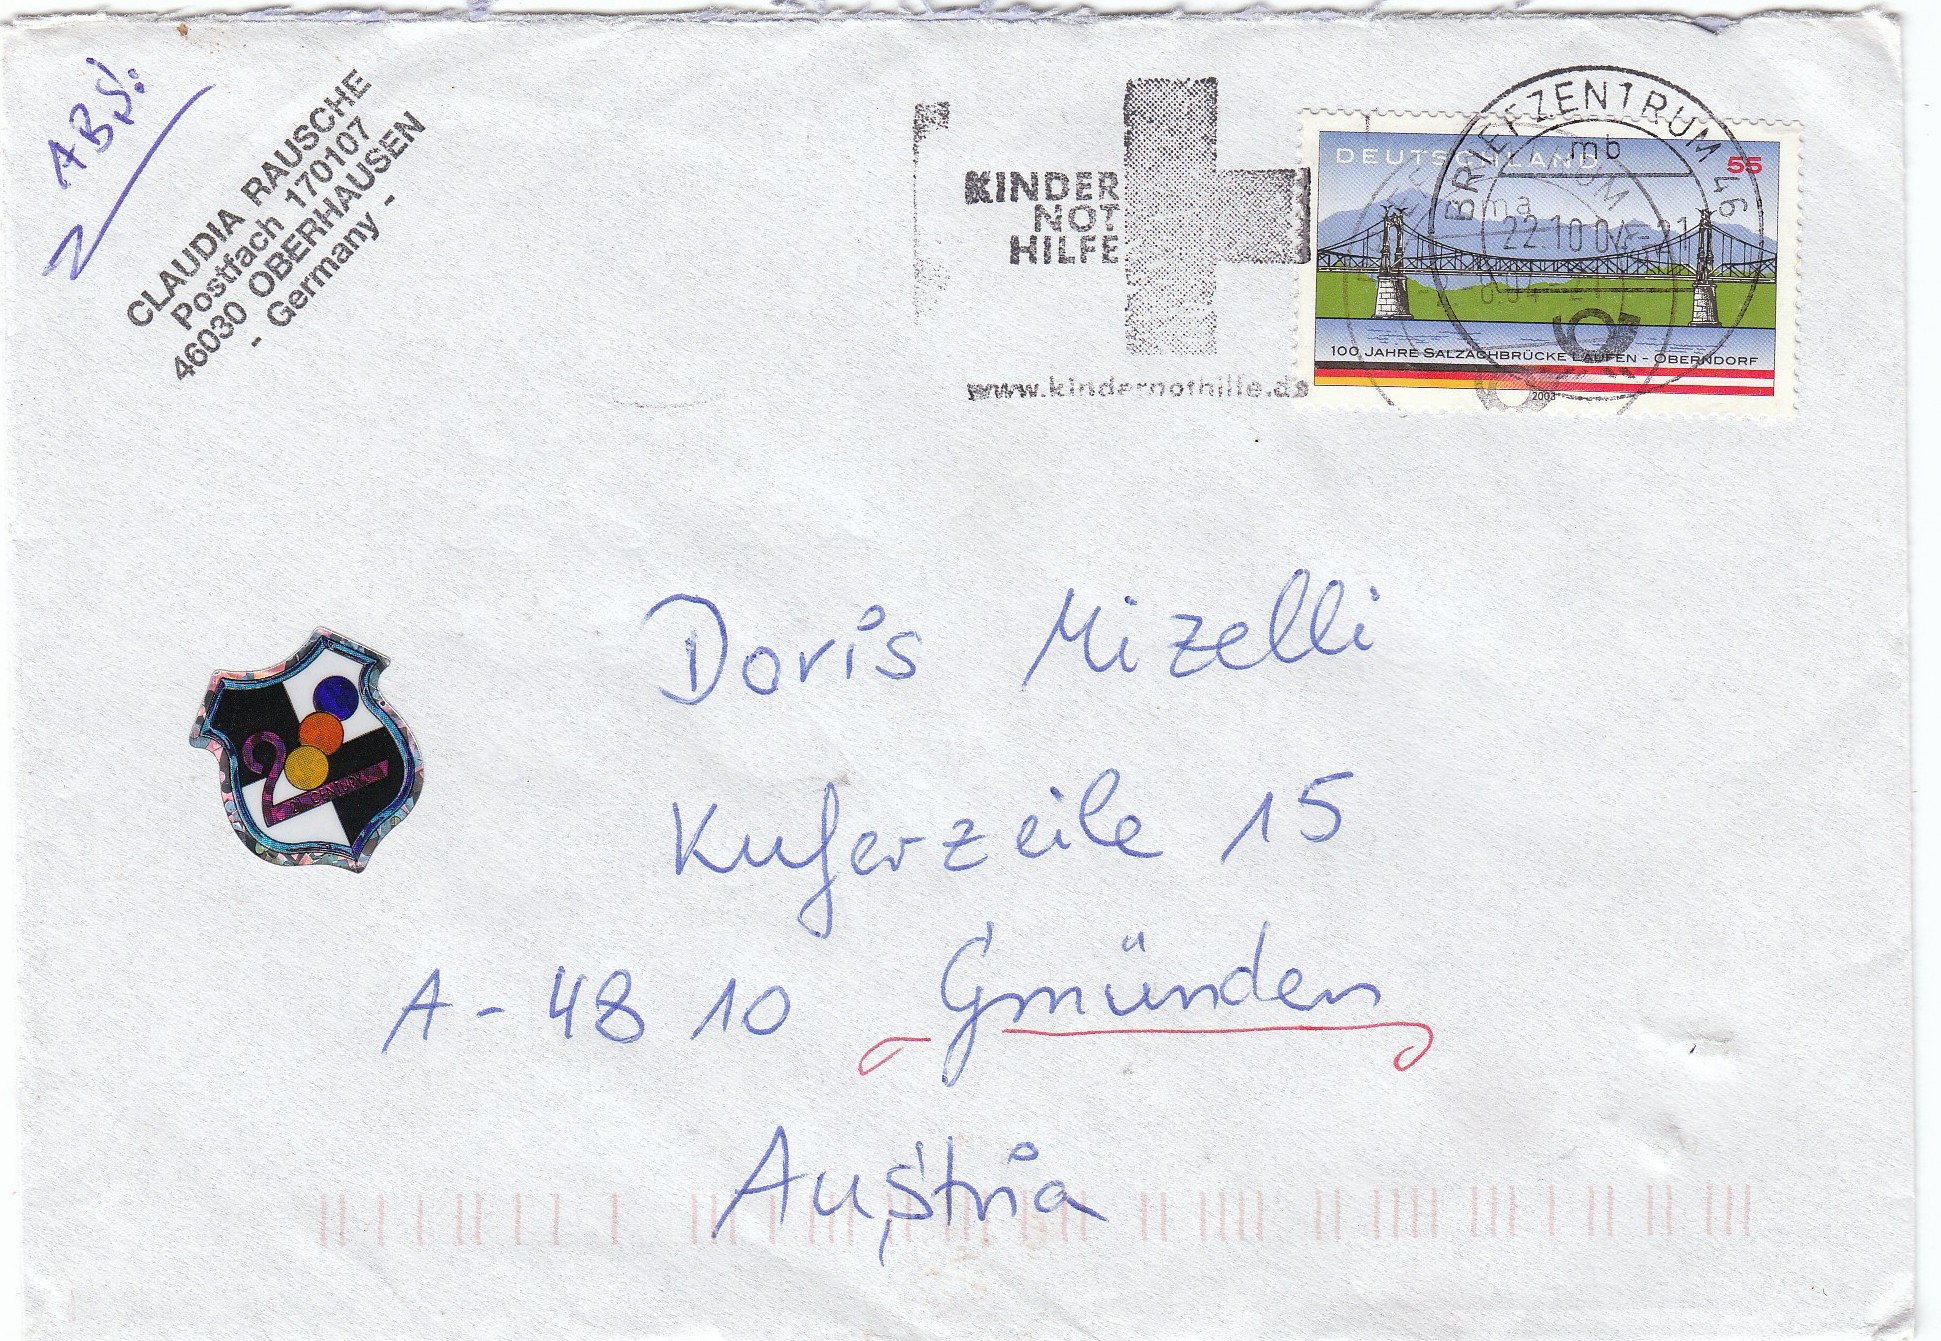 ABS:
CLAUDIA RAUSCHE
Postfach 170107
46030 OBERHAUSEN
- Germany -
KINDER
NOT
HILFE
www.kindernothilfe.de
BRIEFZENTRUM 46
mb
22.10.04-
ma
DEUTSCHLAND 55
100 JAHRE SALZACHBRÜCKE LAUFEN - OBERNDORF
2003
2
CENTURY
Doris Mizelli
Kuferzeile 15
A-4810 Gmünden
Austria